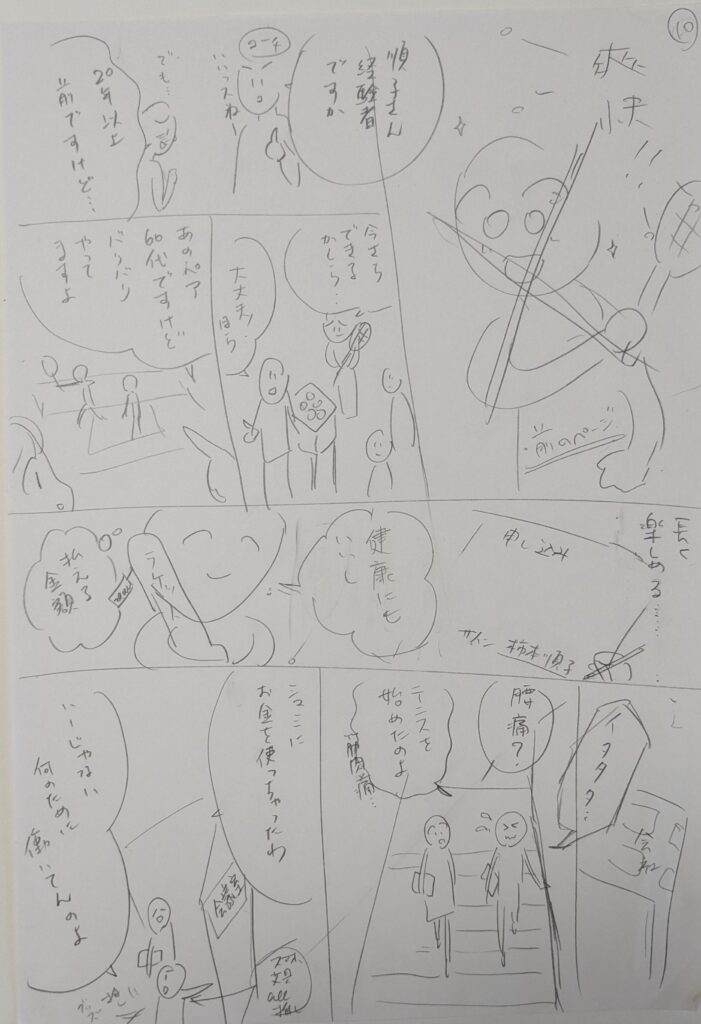 10
爽快!!
前のページ
順子さん
経験者
ですか
コーチ
いいっスねー
でも…
20年以上
前ですけど…
今さら
できる
かしら…
大丈夫!
ほら
あのペア
60代ですけど
バリバリ
やって
ますよ
長く
楽しめる……
申し込み
サイン 柿本順子
健康にも
いいし
ラケット
払える
金額
イタタタ…
会社
腰痛?
テニスを
始めたのよ
筋肉痛…
シュミに
お金を使っちゃったわ
会議室
いーじゃない
何のために
働いてんのよ
all